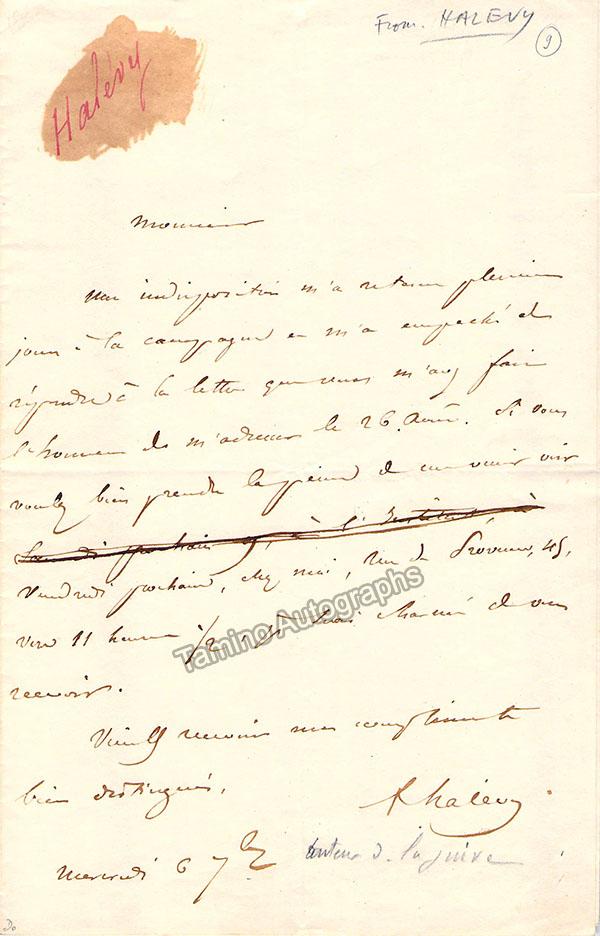 From. HALEVY
9
Halévy
Monsieur
une indisposition m'a retenu plusieurs
jours à la campagne et m'a empêché de
répondre à la lettre que vous m'avez fait
l'honneur de m'adresser le 26 Août. Si vous
voulez bien prendre la peine de me venir voir
Samedi prochain à l'Institut, à
Vendredi prochain, chez moi, rue de Provence, 45,
vers 11 heures 1/2, je serai charmé de vous
recevoir.
Veuillez recevoir mes compliments
bien distingués,
FHalévy
mercredi 6 7bre
auteur de la juive
Tamino Autographs
Do